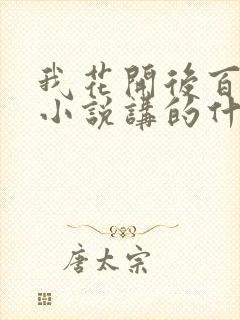 我花開後百
小說講的什
唐太宗